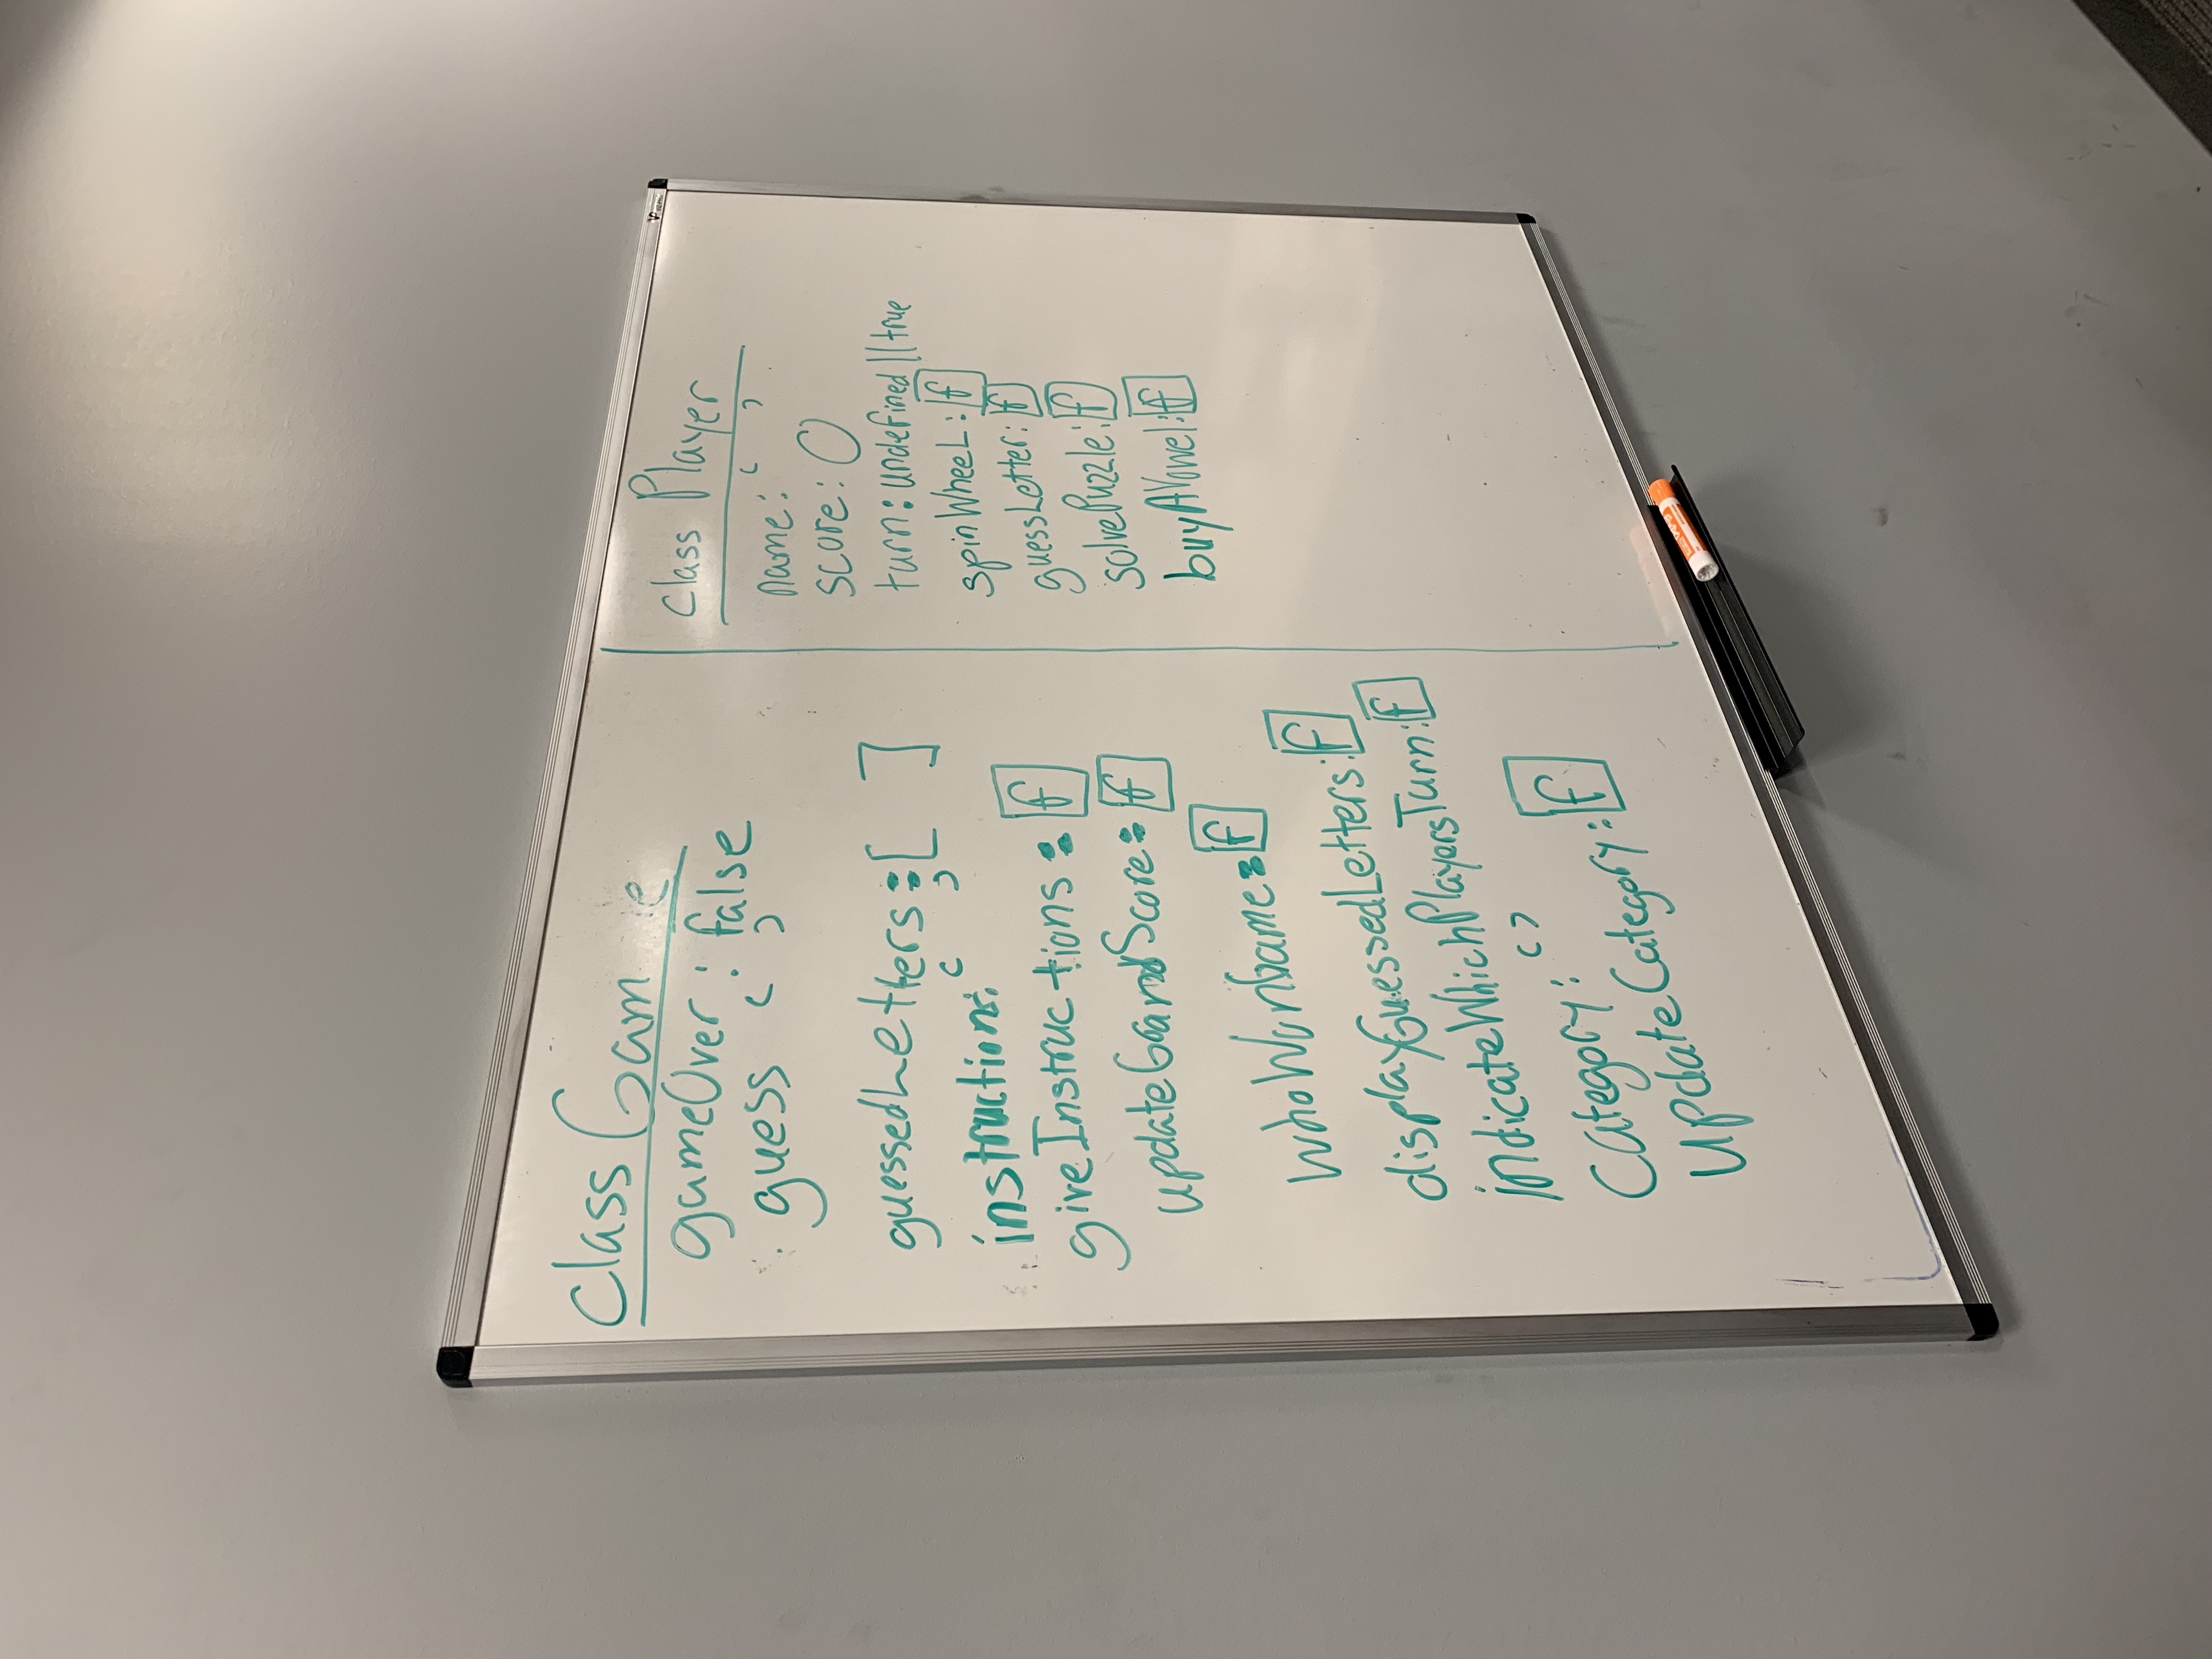 class Game
gameOver: false
guess ‘ ’
guessedLetters: [ ]
instructions: ‘ ’
giveInstructions: f
updateGrandScore: f
whoWonGame: f
displayGuessedLetters: f
indicateWhichPlayersTurn: f
Category: ‘ ’
UpdateCategory: f
class Player
name: ‘ ’
score: 0
turn: undefined || true
spinWheel: f
guessLetter: f
solvePuzzle: f
buyAVowel: f